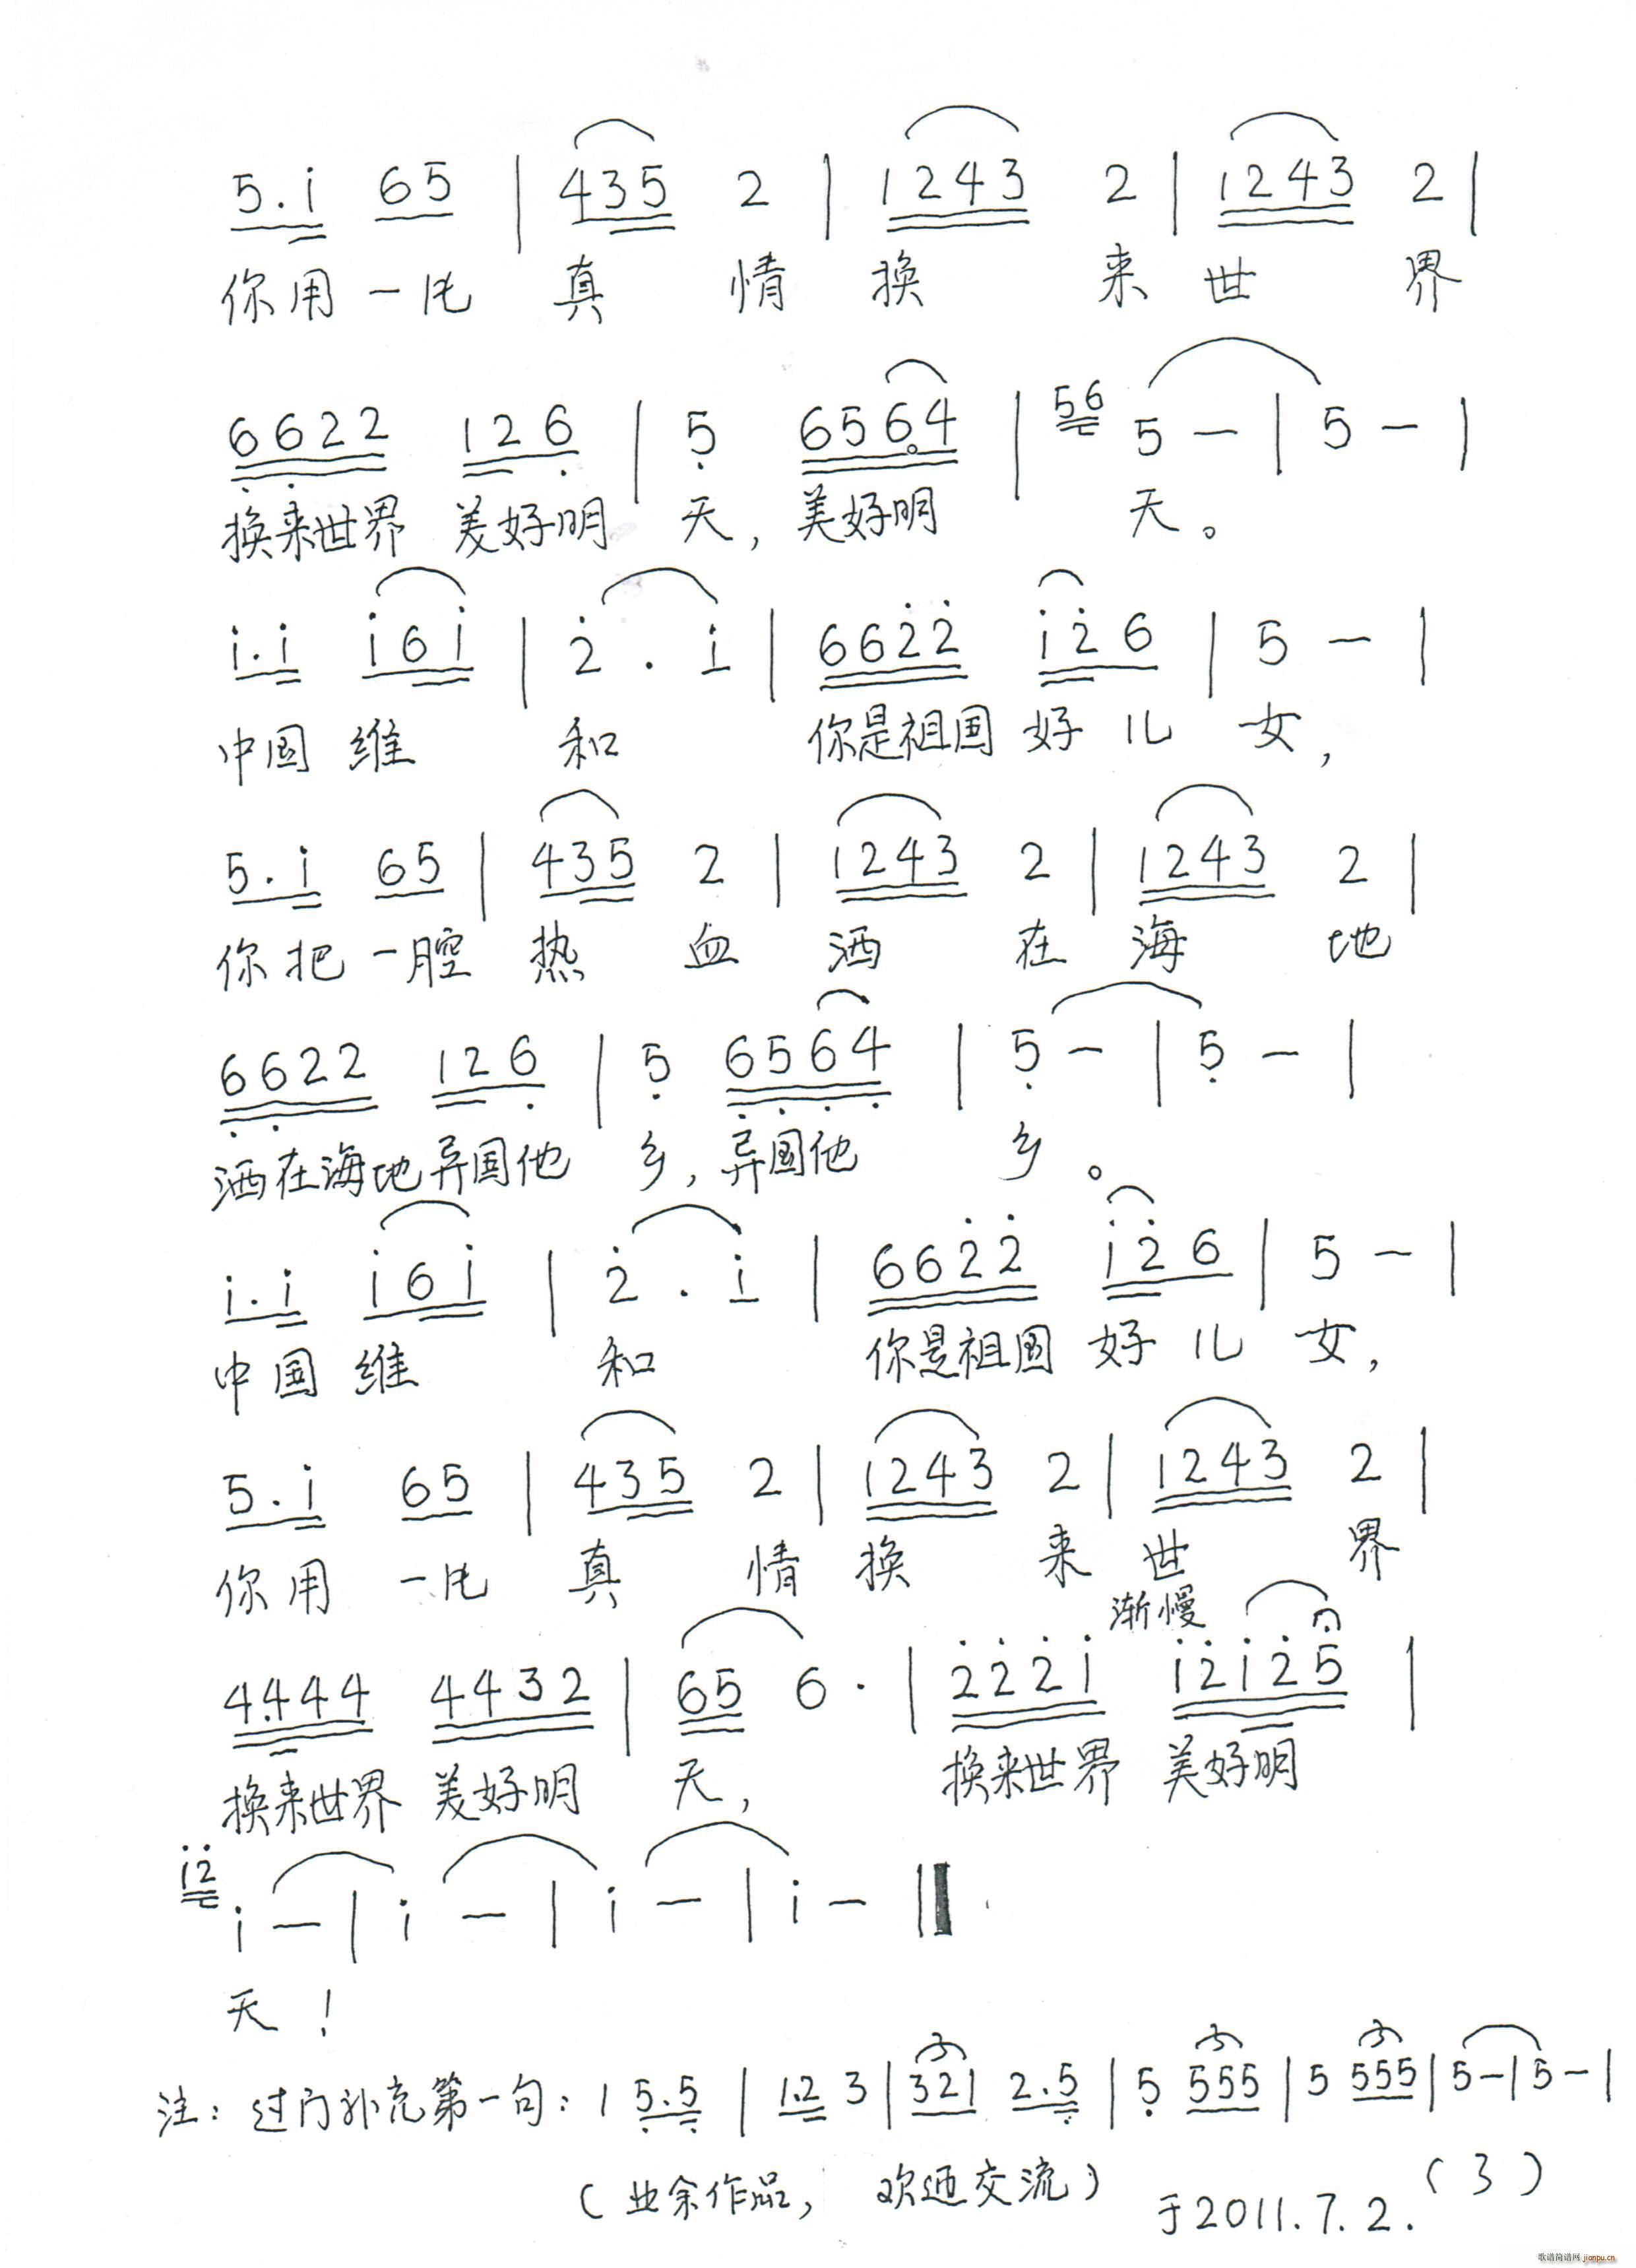 5.i 65 | 435 2 | 1243 2 | 1243 2 |
你用一片真情换来世界
6622 126 | 5 6564 | 56 5 — | 5 — |
换来世界 美好明天，美好明天。
i.i i6i | 2 . i | 6622 i26 | 5 — |
中国维和 你是祖国好儿女，
5.i 65 | 435 2 | 1243 2 | 1243 2 |
你把一腔热血洒在海地
6622 126 | 5 6564 | 5 — | 5 — |
洒在海地异国他乡，异国他乡。
i.i i6i | 2 . i | 6622 i26 | 5 — |
中国维和 你是祖国好儿女，
5.i 65 | 435 2 | 1243 2 | 1243 2 |
你用一片真情换来世界
渐慢
4.444 4432 | 65 6. | 222i i2i25 |
换来世界 美好明天，换来世界 美好明
i2 i — | i — | i — | i — ‖
天！
注：过门补充第一句：1 5.5 | 1.2 3 | 321 2.5 | 5 555 | 5 555 | 5 — | 5 — |
（业余作品，欢迎交流） 于2011.7.2. （3）
歌谱简谱网 jianpu.cn